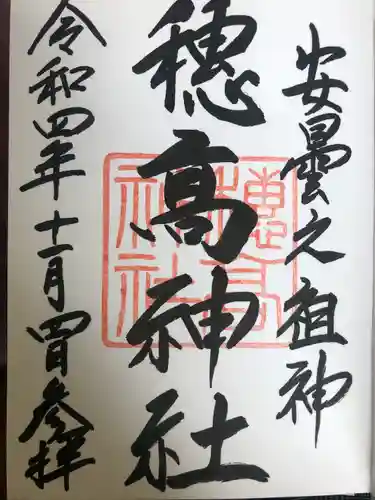 安曇之祖神
穂高神社
穂高神社
令和四年十一月四日参拝